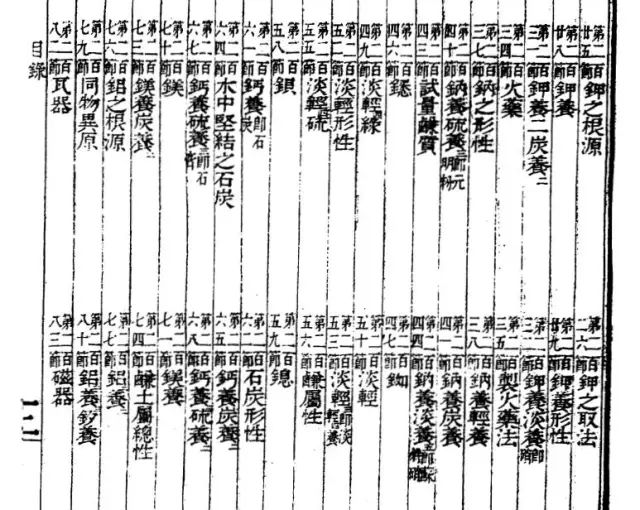 第二百廿五節鉀之根源
第二百二六節鉀之取法
第二百廿八節鉀養
第二百廿九節鉀養形性
第二百三一節鉀養二炭養二
第二百三二節鉀養淡養即硝
第二百三四節火藥
第二百三五節製火藥法
第二百三七節鈉之形性
第二百三八節鈉養輕養
第二百四十節鈉養硫養三即元明粉
第二百四一節鈉養炭養二
第二百四三節試量鹻質
第二百四四節鈉養淡養
第二百四六節鋰
第二百四七節銣
第二百四九節淡輕綠
第二百五十節淡輕
第二百五二節淡輕形性
第二百五三節淡輕輕養
第二百五五節淡輕硫
第二百五六節鹻屬性
第二百五八節鋇
第二百五九節鎴
第二百六一節鈣養即石灰
第二百六二節石灰形性
第二百六四節水中堅結之石炭
第二百六五節鈣養炭養二
第二百六七節鈣養硫養三即石膏
第二百六八節鈣養硫養二
第二百七十節鎂
第二百七一節鎂養
第二百七三節鎂養炭養二
第二百七四節鹻土屬總性
第二百七六節鋁之根源
第二百七七節鋁養
第二百七九節同物異原
第二百八十節鋁養矽養
第二百八二節瓦器
第二百八三節磁器
目錄
十二